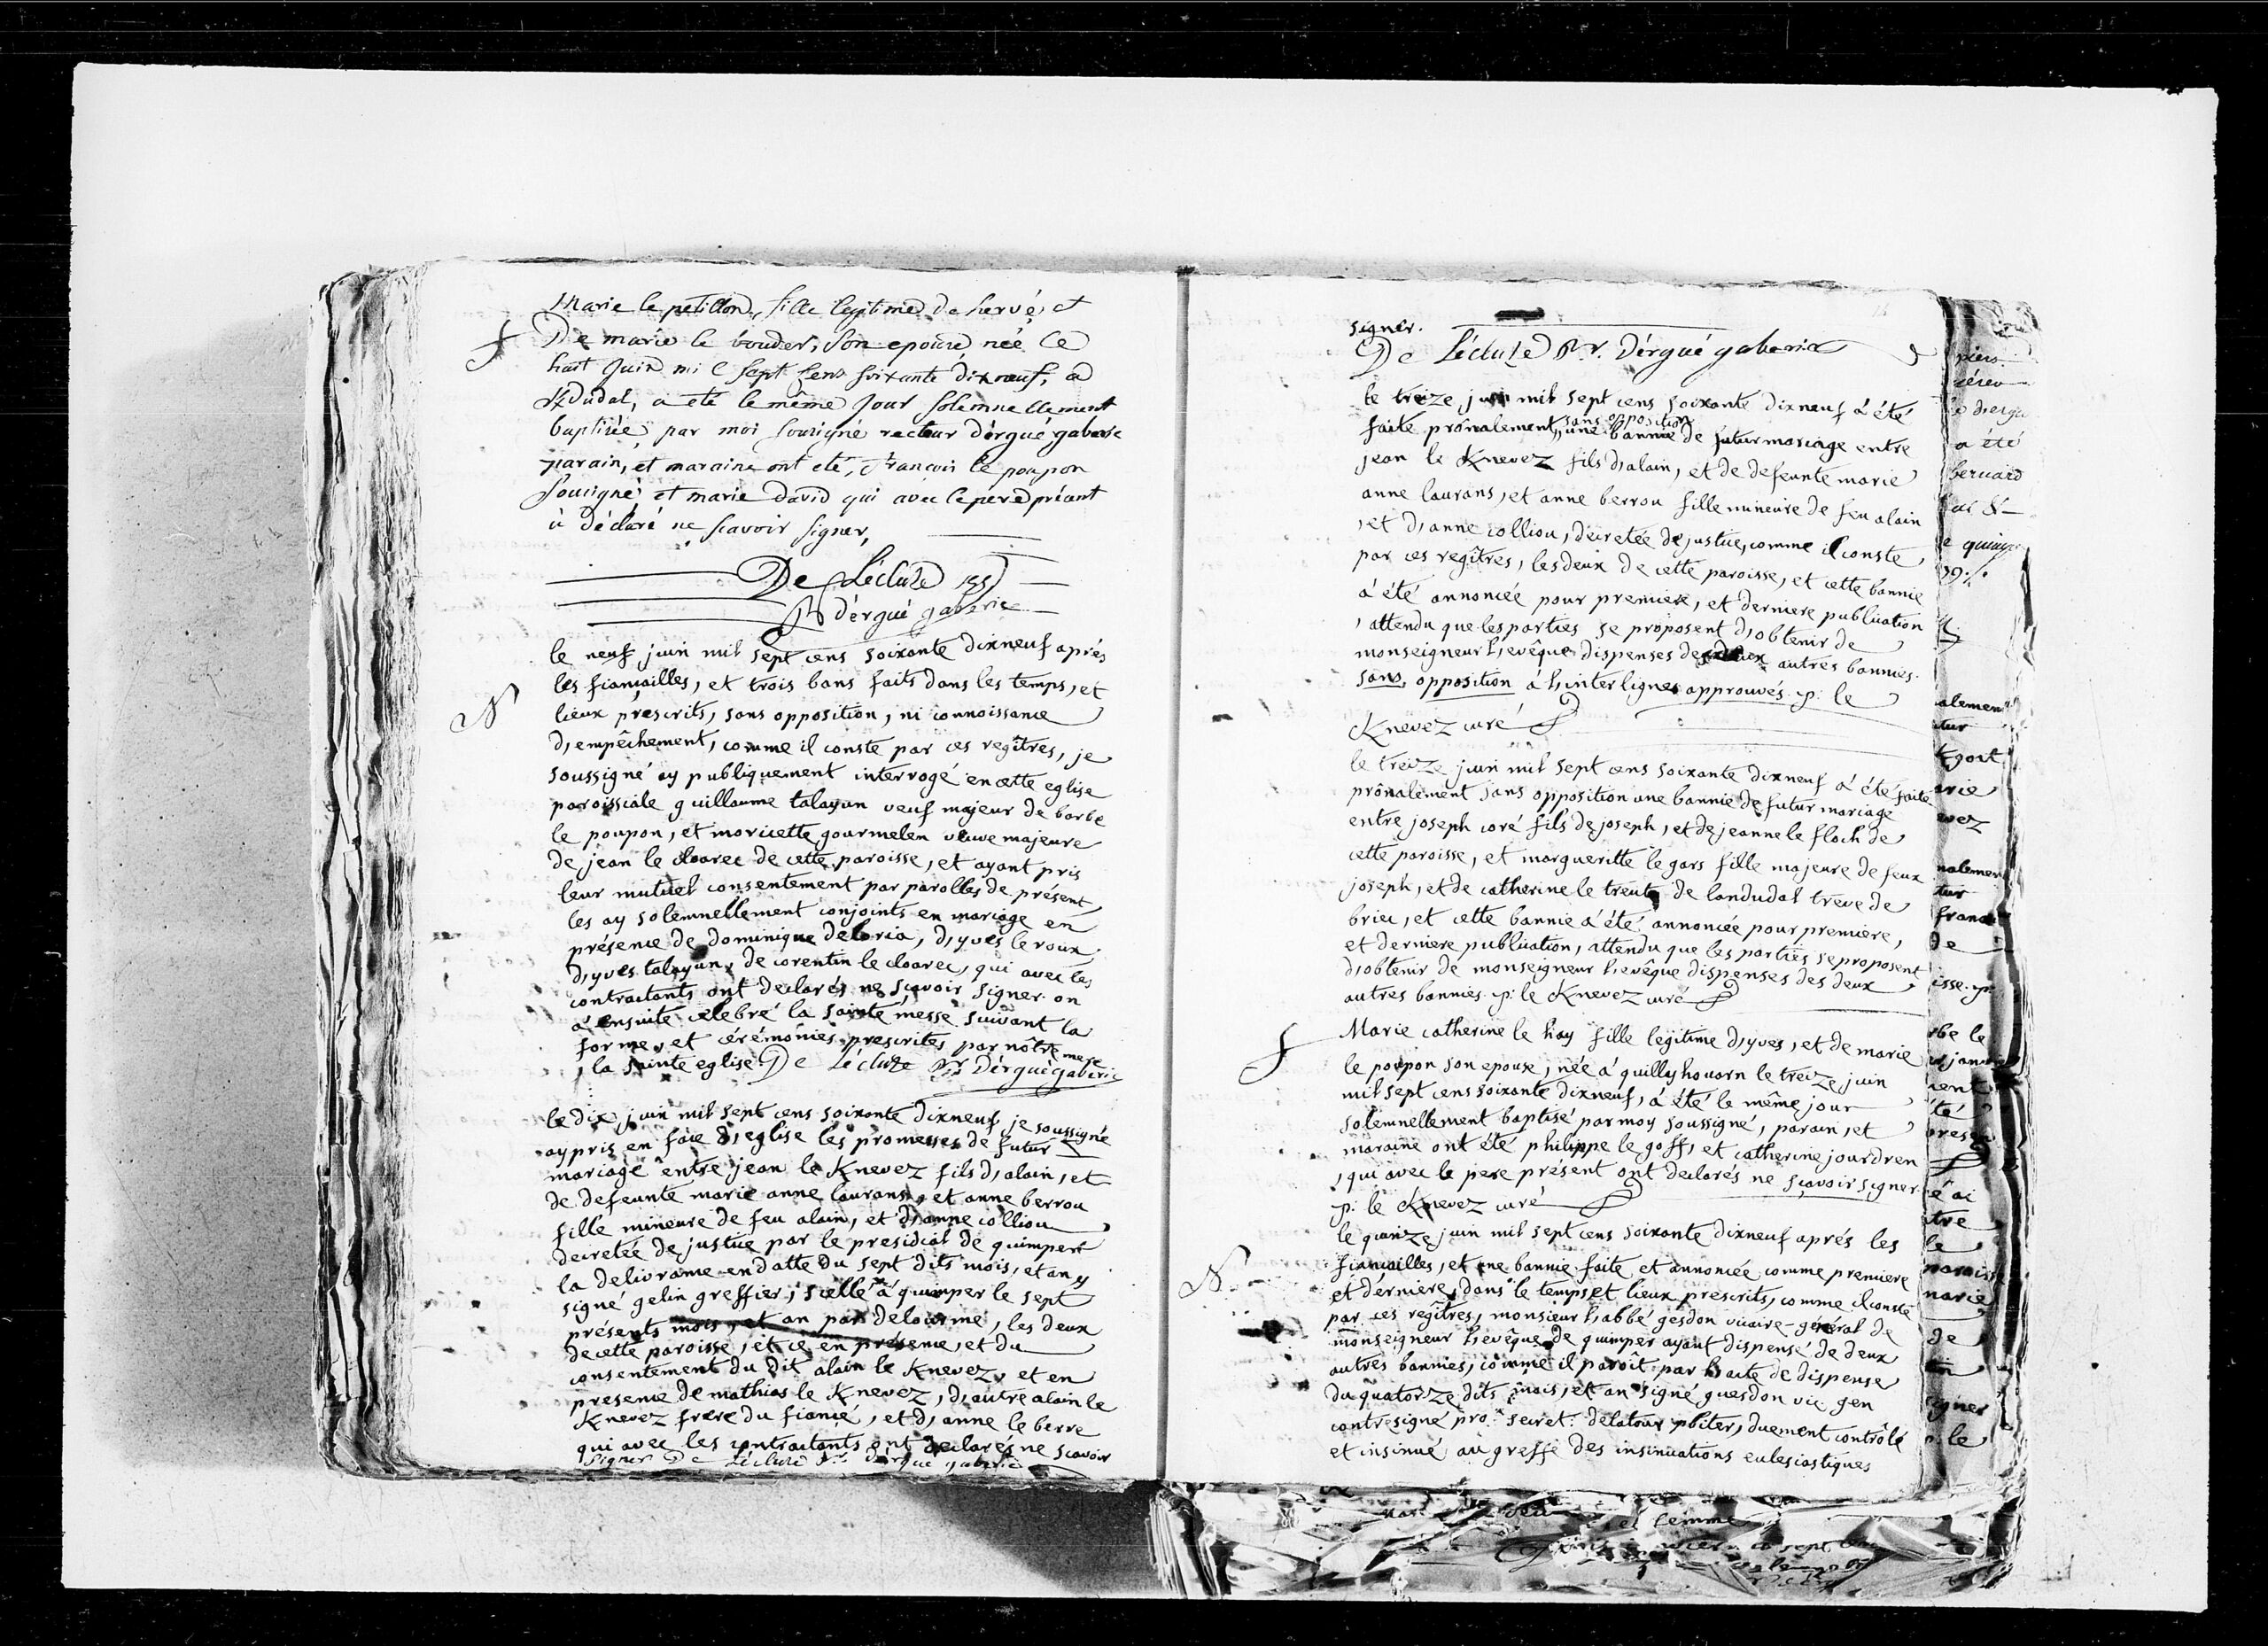 Marie le petillon, fille legitime de hervé, et
De marie le bouder, son epouse née le
huit juin mil sept cens soixante dixneuf, a
Kdudal, a été le même jour solemnellement
baptisée par moi sousigné recteur d'ergué gaberic
parain, et maraine ont été, francois le poupon
sousigné, et marie david qui avec le pere présent
a déclaré ne scavoir signer,
De Lécluze
d'ergué gaberic
le neuf juin mil sept cens soixante dixneuf aprés
N
les fiançailles, et trois bans faits dans les temps, et
lieux prescrits, sans opposition, ni connoissance
d'empêchement, comme il conste par ces regîtres, je
soussigné ay publiquement interrogé en cette eglise
paroissiale guillaume talayun veuf majeur de barbe
le poupon, et moricette gourmelen veuve majeure
de jean le cloarec de cette paroisse, et ayant pris
leur mutuel consentement par parolles de présent
les ay solemnellement conjoints en mariage en
présence de dominique deloria, d'yves le roux
d'yves talayun, de corentin le cloarec, qui avec les
contractants ont declarés ne scavoir signer. on
a ensuite celebré la sainte messe suivant la
forme, et cérémonies prescrites par nôtre mere
la sainte eglise. De Lécluze Rr D'ergué gaberic
le dix juin mil sept cens soixante dixneuf je soussigné
ay pris en face d'eglise les promesses de futur
mariage entre jean le Knevez fils d'alain, et
de defeunte marie anne laurans, et anne berrou
fille mineure de feu alain, et d'anne colliou
decretée de justice par le presidial de quimper
la delivrance en datte du sept dits mois, et an y
signé gelin greffier, scellé à quimper le sept
présents mois, et an par delourme, les deux
de cette paroisse, et ce en présence, et du
consentement du dit alain le Knevez, et en
presence de mathias le Knevez, d'autre alain le
Knevez frere du fiancé, et d'anne le berre
qui avec les contractants ont declarés ne scavoir
signer De Lécluze Rr d'ergué gaberic
signer.
De Lécluze Rr. D'érgué gaberic
le treize juin mil sept cens soixante dixneuf a été
sans opposition
faite prônalement une bannie de futur mariage entre
jean le Knevez fils d'alain, et de defeunte marie
anne laurans, et anne berrou fille mineure de feu alain
, et d'anne colliou, decretée de justice, comme il conste
par ces regîtres, les deux de cette paroisse, et cette bannie
a été annoncée pour premiere, et derniere publication
, attendu que les parties se proposent d'obtenir de
monseigneur l'evêque dispenses de deux autres bannies.
sans opposition à l'interligne approuvés. p: le
Knevez curé
le treize juin mil sept cens soixante dixneuf a été faite
prônalement sans opposition une bannie de futur mariage
entre joseph coré fils de joseph, et de jeanne le floch de
cette paroisse, et margueritte le gars fille majeure de feux
joseph, et de catherine le treut de landudal treve de
briec, et cette bannie a été annoncée pour premiere,
et derniere publication, attendu que les parties se proposent
d'obtenir de monseigneur l'evêque dispenses des deux
autres bannies. p: le Knevez curé
Marie catherine le hay fille legitime d'yves, et de marie
le poupon son epouse, née à quillyhouarn le treize juin
mil sept cens soixante dixneuf, a été le même jour
solemnellement baptisé par moy soussigné, parain, et
maraine ont été philippe le goff, et catherine jourdren
, qui avec le pere présent ont declarés ne sçavoir signer.
p: le Knevez curé
le quinze juin mil sept cens soixante dixneuf aprés les
N
fiançailles, et une bannie faite et annoncée comme premiere
et derniere, dans le temps, et lieux prescrits, comme il conste
par ces regitres, monsieur l'abbé gesdon vicaire-général de
monseigneur l'evêque de quimper ayant dispensé de deux
autres bannies, comme il paroit par l'acte de dispense
du quatorze dits mois, et an signé guesdon vic. gen
contresigné pro. secret. delatour pbiter, duement contrôlé
et insinué au greffe des insinuations eclesiastiques
a été
bernard
alemen
tur
Kgoat
arie
evez
nalemen
tur
franc
de
isse. p:
rbe le
té
tre
le
paroiss
marie
de
signer
p: le